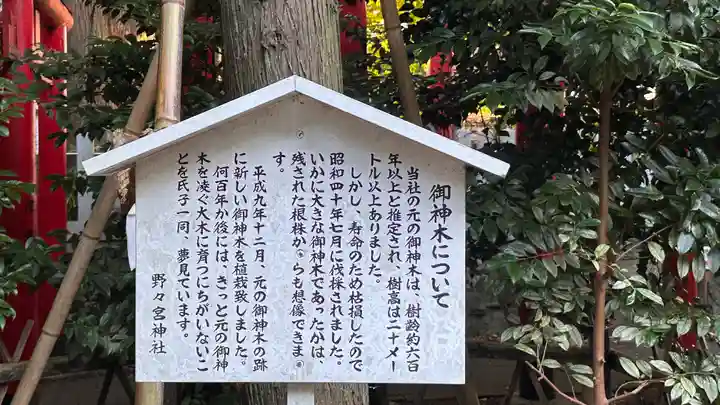 御神木について
当社の元の御神木は、樹齢約六百
年以上と推定され、樹高は二十メー
トル以上ありました。
しかし、寿命のため枯損したので
昭和四十年七月に伐採されました。
いかに大きな御神木であったかは、
残された根株か。らも想像できま。
す。
平成九年十二月、元の御神木の跡
に新しい御神木を植栽致しました。
何百年か後には、きっと元の御神
木を凌ぐ大木に育つにちがいないこ
とを氏子一同、夢見ています。
野々宮神社